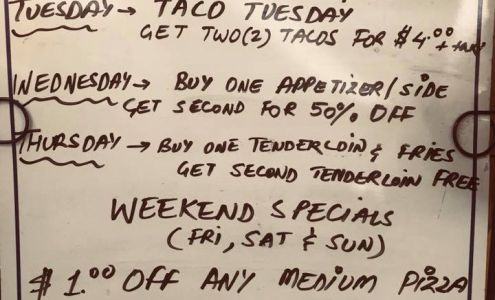 TUESDAY → TACO TUESDAY
GET TWO(2) TACOS FOR $4.00 + TAX
WEDNESDAY → BUY ONE APPETIZER/SIDE
GET SECOND FOR 50% OFF
THURSDAY → BUY ONE TENDERLOIN & FRIES
GET SECOND TENDERLOIN FREE
WEEKEND SPECIALS
(FRI, SAT & SUN)
$1.00 OFF ANY MEDIUM PIZZA